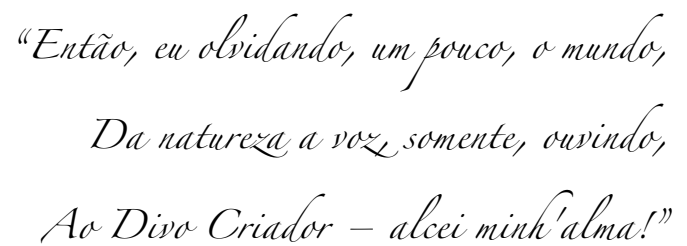 “Então, eu olvidando, um pouco, o mundo,
Da natureza a voz, somente, ouvindo,
Ao Divo Criador – alcei minh'alma!”